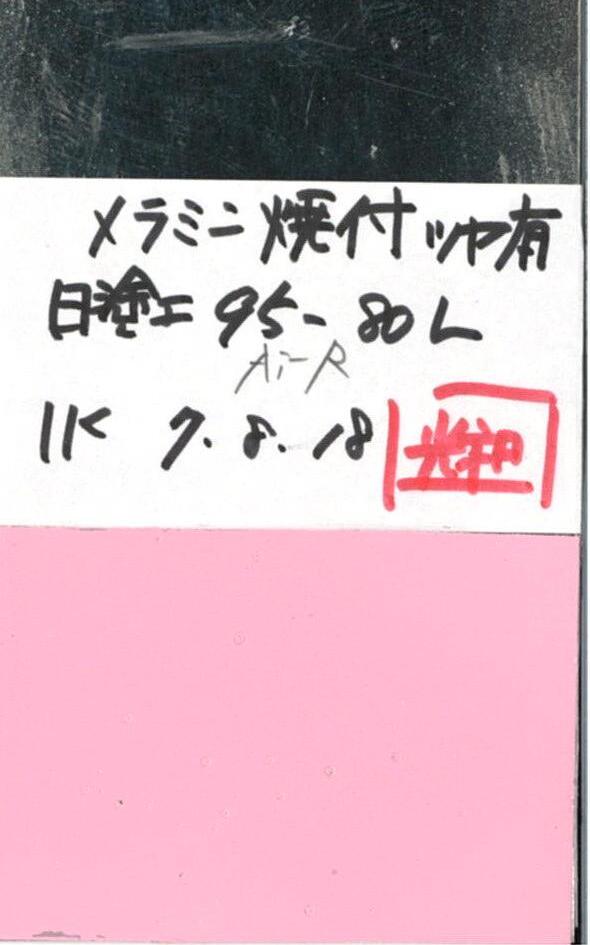 メラミン焼付ツヤ有
日塗工 95-80L
Ai-R
1K 7.8.18